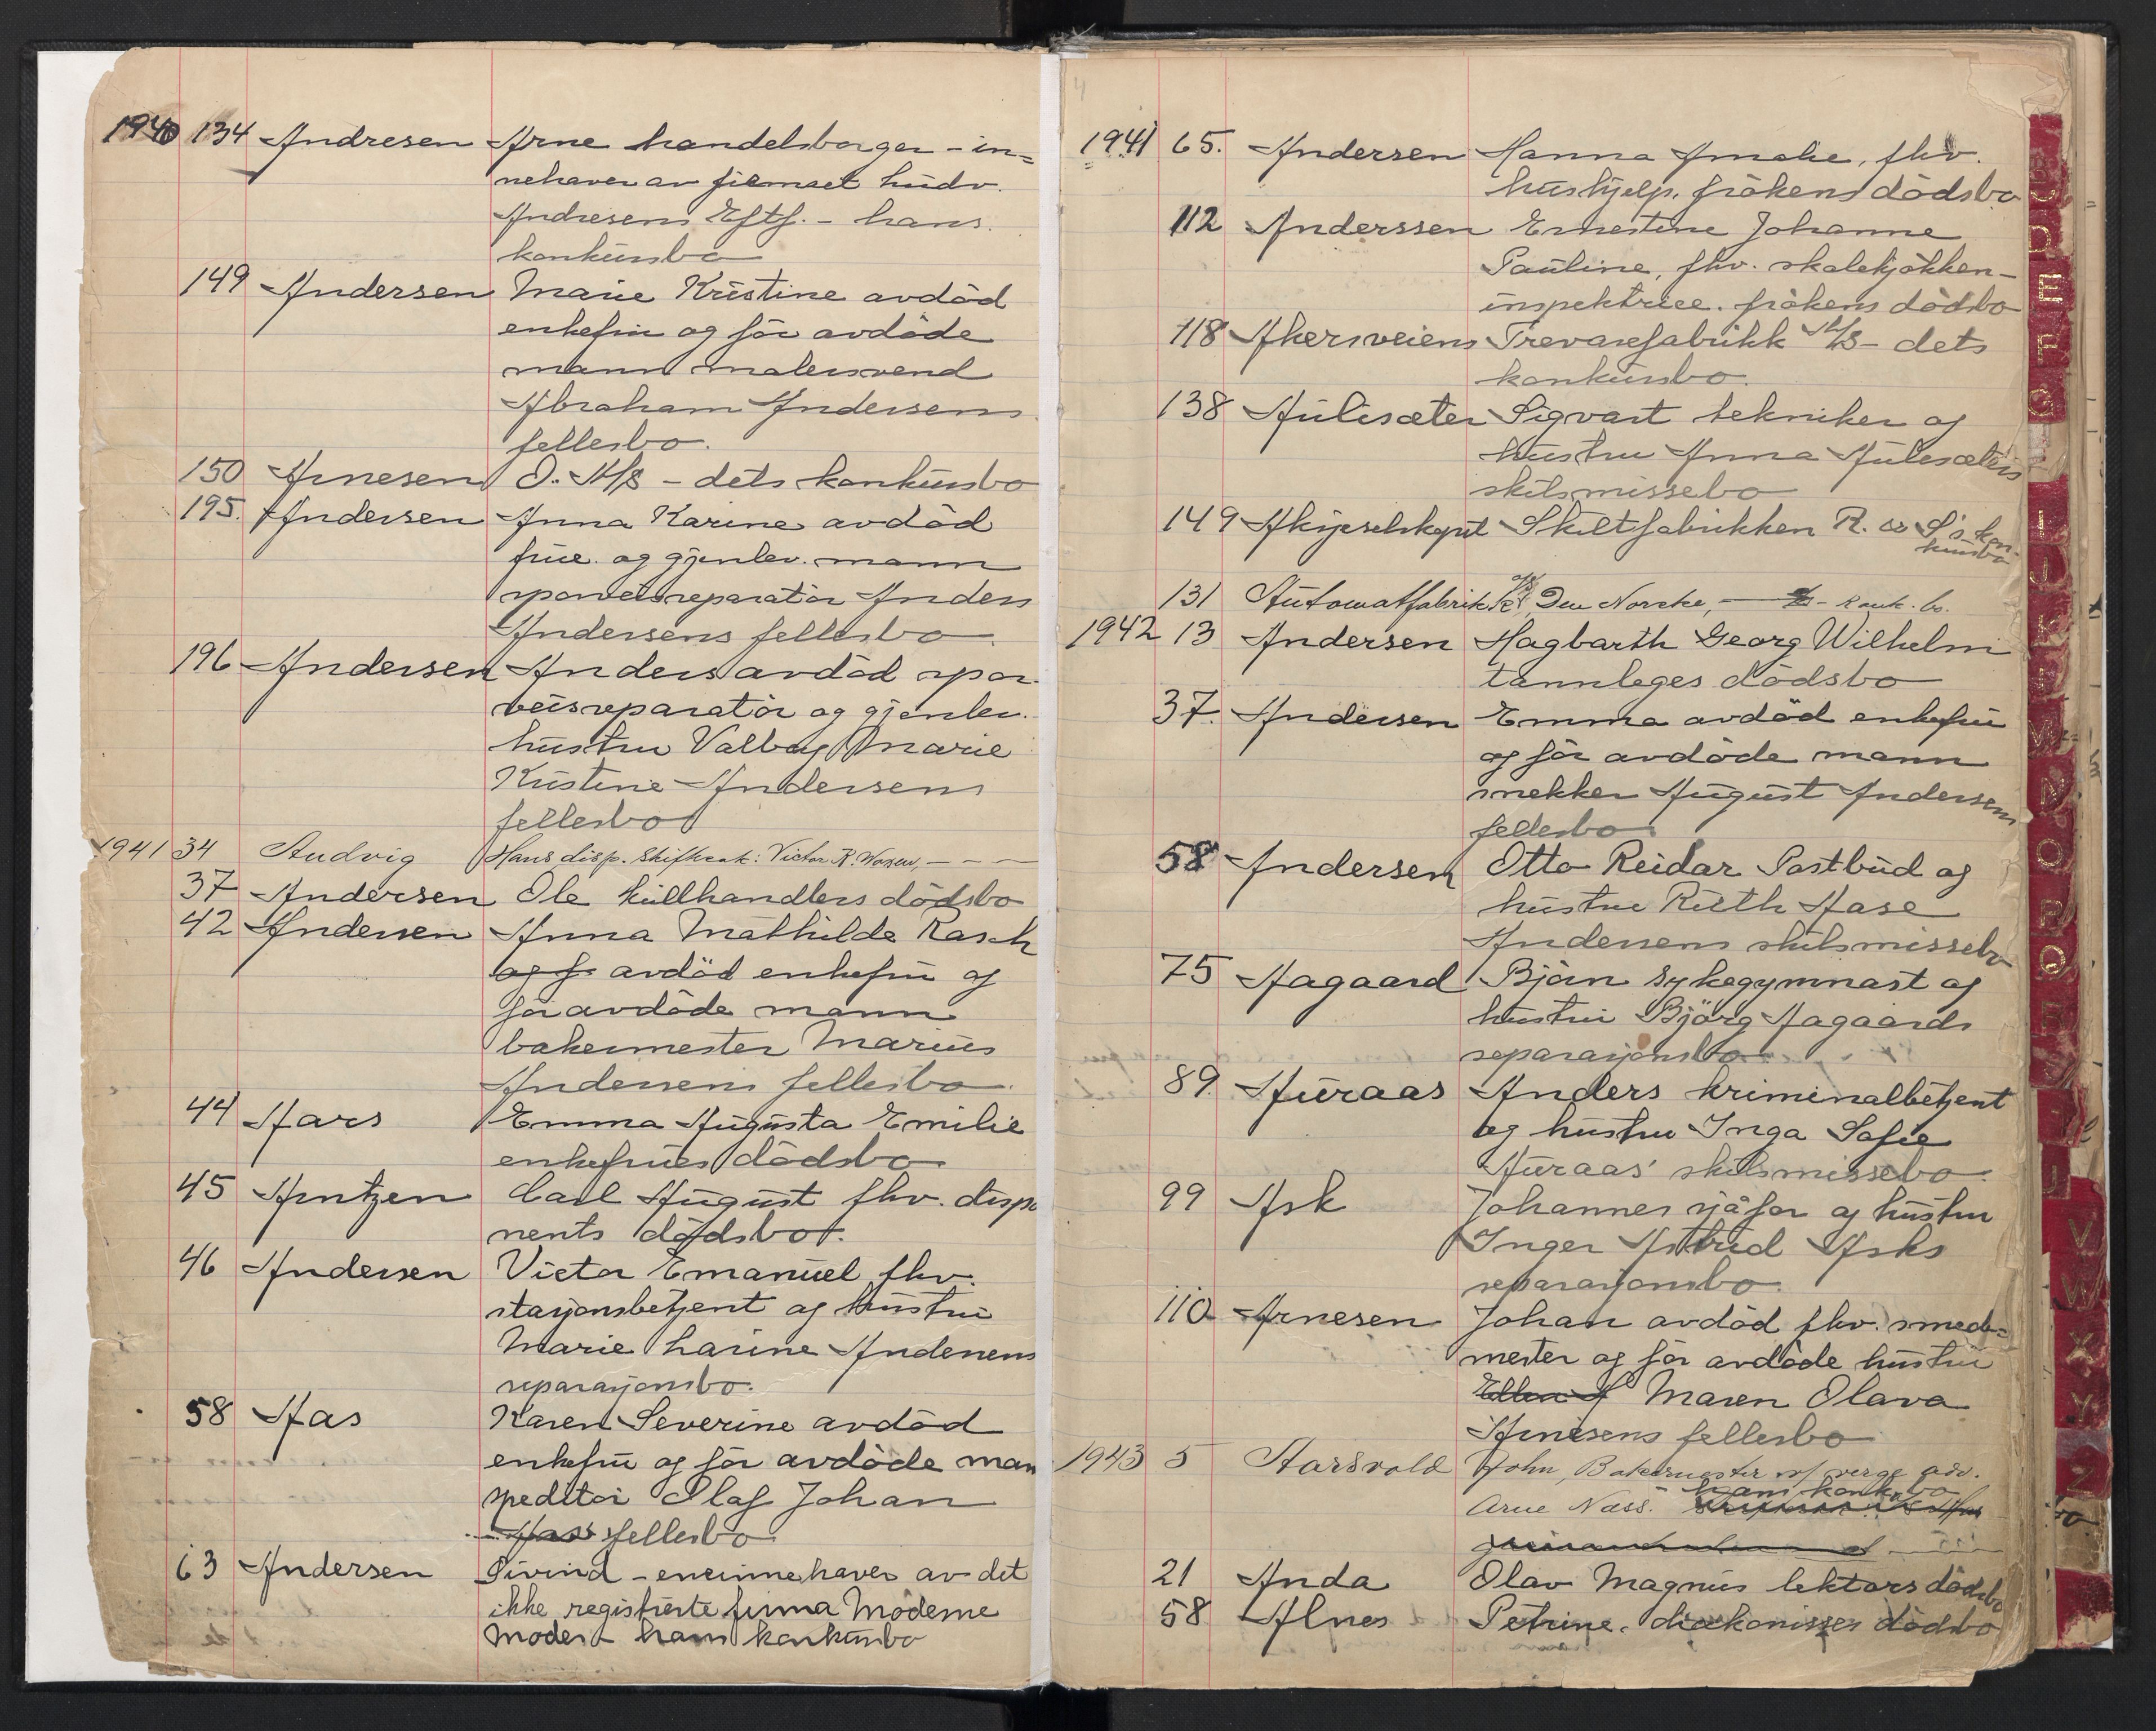 1940 134 Andresen Arne handelsborger - in=
nehaver av firmaet Ludv.
Andresens Eftf. - hans
konkursbo
149 Andersen Marie Kristine avdød
enkefru og før avdøde
mann malersvend
Abraham Andersens
fellesbo.
150 Arnesen O. A/S - dets konkursbo
195. Andersen Anna Karine avdød
frue og gjenlev. mann
sporveisreparatør Anders
Andersens fellesbo.
196 Andersen Anders avdød spor-
veisreparatør og gjenlev.
hustru Valborg Marie
Kristine Andersens
fellesbo
1941 34 Audvig Hans disp. Skifteak: Victor R.
37 Andersen Ole kullhandlers dødsbo
42 Andersen Anna Mathilde Rasch
og f. avdød enkefru og
før avdøde mann
bakermester Marius
Andersens fellesbo.
44 Aars Emma Augusta Emilie
enkefrues dødsbo
45 Arntzen Carl August fhv. dispo
nents dødsbo.
46 Andersen Victor Emanuel fhv.
stasjonsbetjent og hustru
Marie Karine Andersens
separasjonsbo.
58 Aas Karen Severine avdød
enkefru og før avdøde man
speditør Olaf Johan
Aass fellesbo
63 Andersen Eivind - eneinnehaver av det
ikke registrerte firma Moderne
Moder - hans konkursbo
4
1941 65. Andersen Hanna Amalie, fhv.
hushjelp, frøkens dødsbo
112 Anderssen Ernestine Johanne
Pauline, fhv. skolekjøkken-
inspektrice. frøkens dødsbo
118 Akersveiens Trevarefabrikk A/S - dets
konkursbo.
138 Aulesæter Sigvart tekniker og
hustru Anna Aulesæters
skilsmissebo
149 Aksjeselskapet Skiltfabrikken R. & S's kon-
kursbo
131 Automatfabrikk A/S, Den Norske, - konk. bo.
1942 13 Andersen Hagbarth Georg Wilhelm
tannleges dødsbo
37. Andersen Emma avdød enkefru
og før avdøde mann
snekker August Andersens
fellesbo
58 Andersen Otto Reidar Postbud og
hustru Ruth Aase
Andersens skilsmissebo
75 Aagaard Bjørn sykegymnast og
hustru Bjørg Aagaards
separasjonsbo
89. Auraas Anders kriminalbetjent
og hustru Inga Sofie
Auraas' skilsmissebo.
99 Ask Johannes sjåfør og hustru
Inger Astrid Asks
separasjonsbo.
110 Arnesen Johan avdød fhv. smed=
mester og før avdøde hustru
Ellen Maren Olava
Arnesens fellesbo
1943 5 Aarsvold John, Bakermester v/ verge adv.
Arne Næss. - hans konk.bo
21 Anda Olav Magnus lektors dødsbo
58 Alnes Petrine, diakonisses dødsbo
C
D
E
F
G
I
J
K
L
M
N
O
P
Q
R
S
T
U
V
W
X
Y
Z